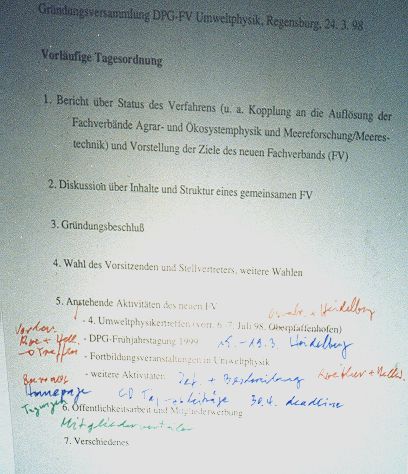 Gründungsversammlung DPG-FV Umweltphysik, Regensburg, 24. 3. 98
Vorläufige Tagesordnung
1. Bericht über Status des Verfahrens (u. a. Kopplung an die Auflösung der
Fachverbände Agrar- und Ökosystemphysik und Meeresforschung/Meeres-
technik) und Vorstellung der Ziele des neuen Fachverbands (FV)
2. Diskussion über Inhalte und Struktur eines gemeinsamen FV
3. Gründungsbeschluß
4. Wahl des Vorsitzenden und Stellvertreters, weitere Wahlen
5. Anstehende Aktivitäten des neuen FV
+ Heidelberg
- 4. Umweltphysikertreffen (vorr. 6. 7. Juli 98, Oberpfaffenhofen)
- DPG-Frühjahrstagung 1999 15. - 19.3. Heidelberg
- Fortbildungsveranstaltungen in Umweltphysik
- weitere Aktivitäten
Homepage CD 30.4. deadline
6. Öffentlichkeitsarbeit und Mitgliederwerbung
7. Verschiedenes